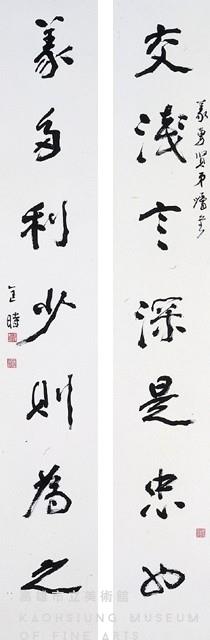 交淺言深是忠也
義勇賢弟
義多利少則為之
高雄市立美術館
KAOHSIUNG MUSEUM
OF FINE ARTS